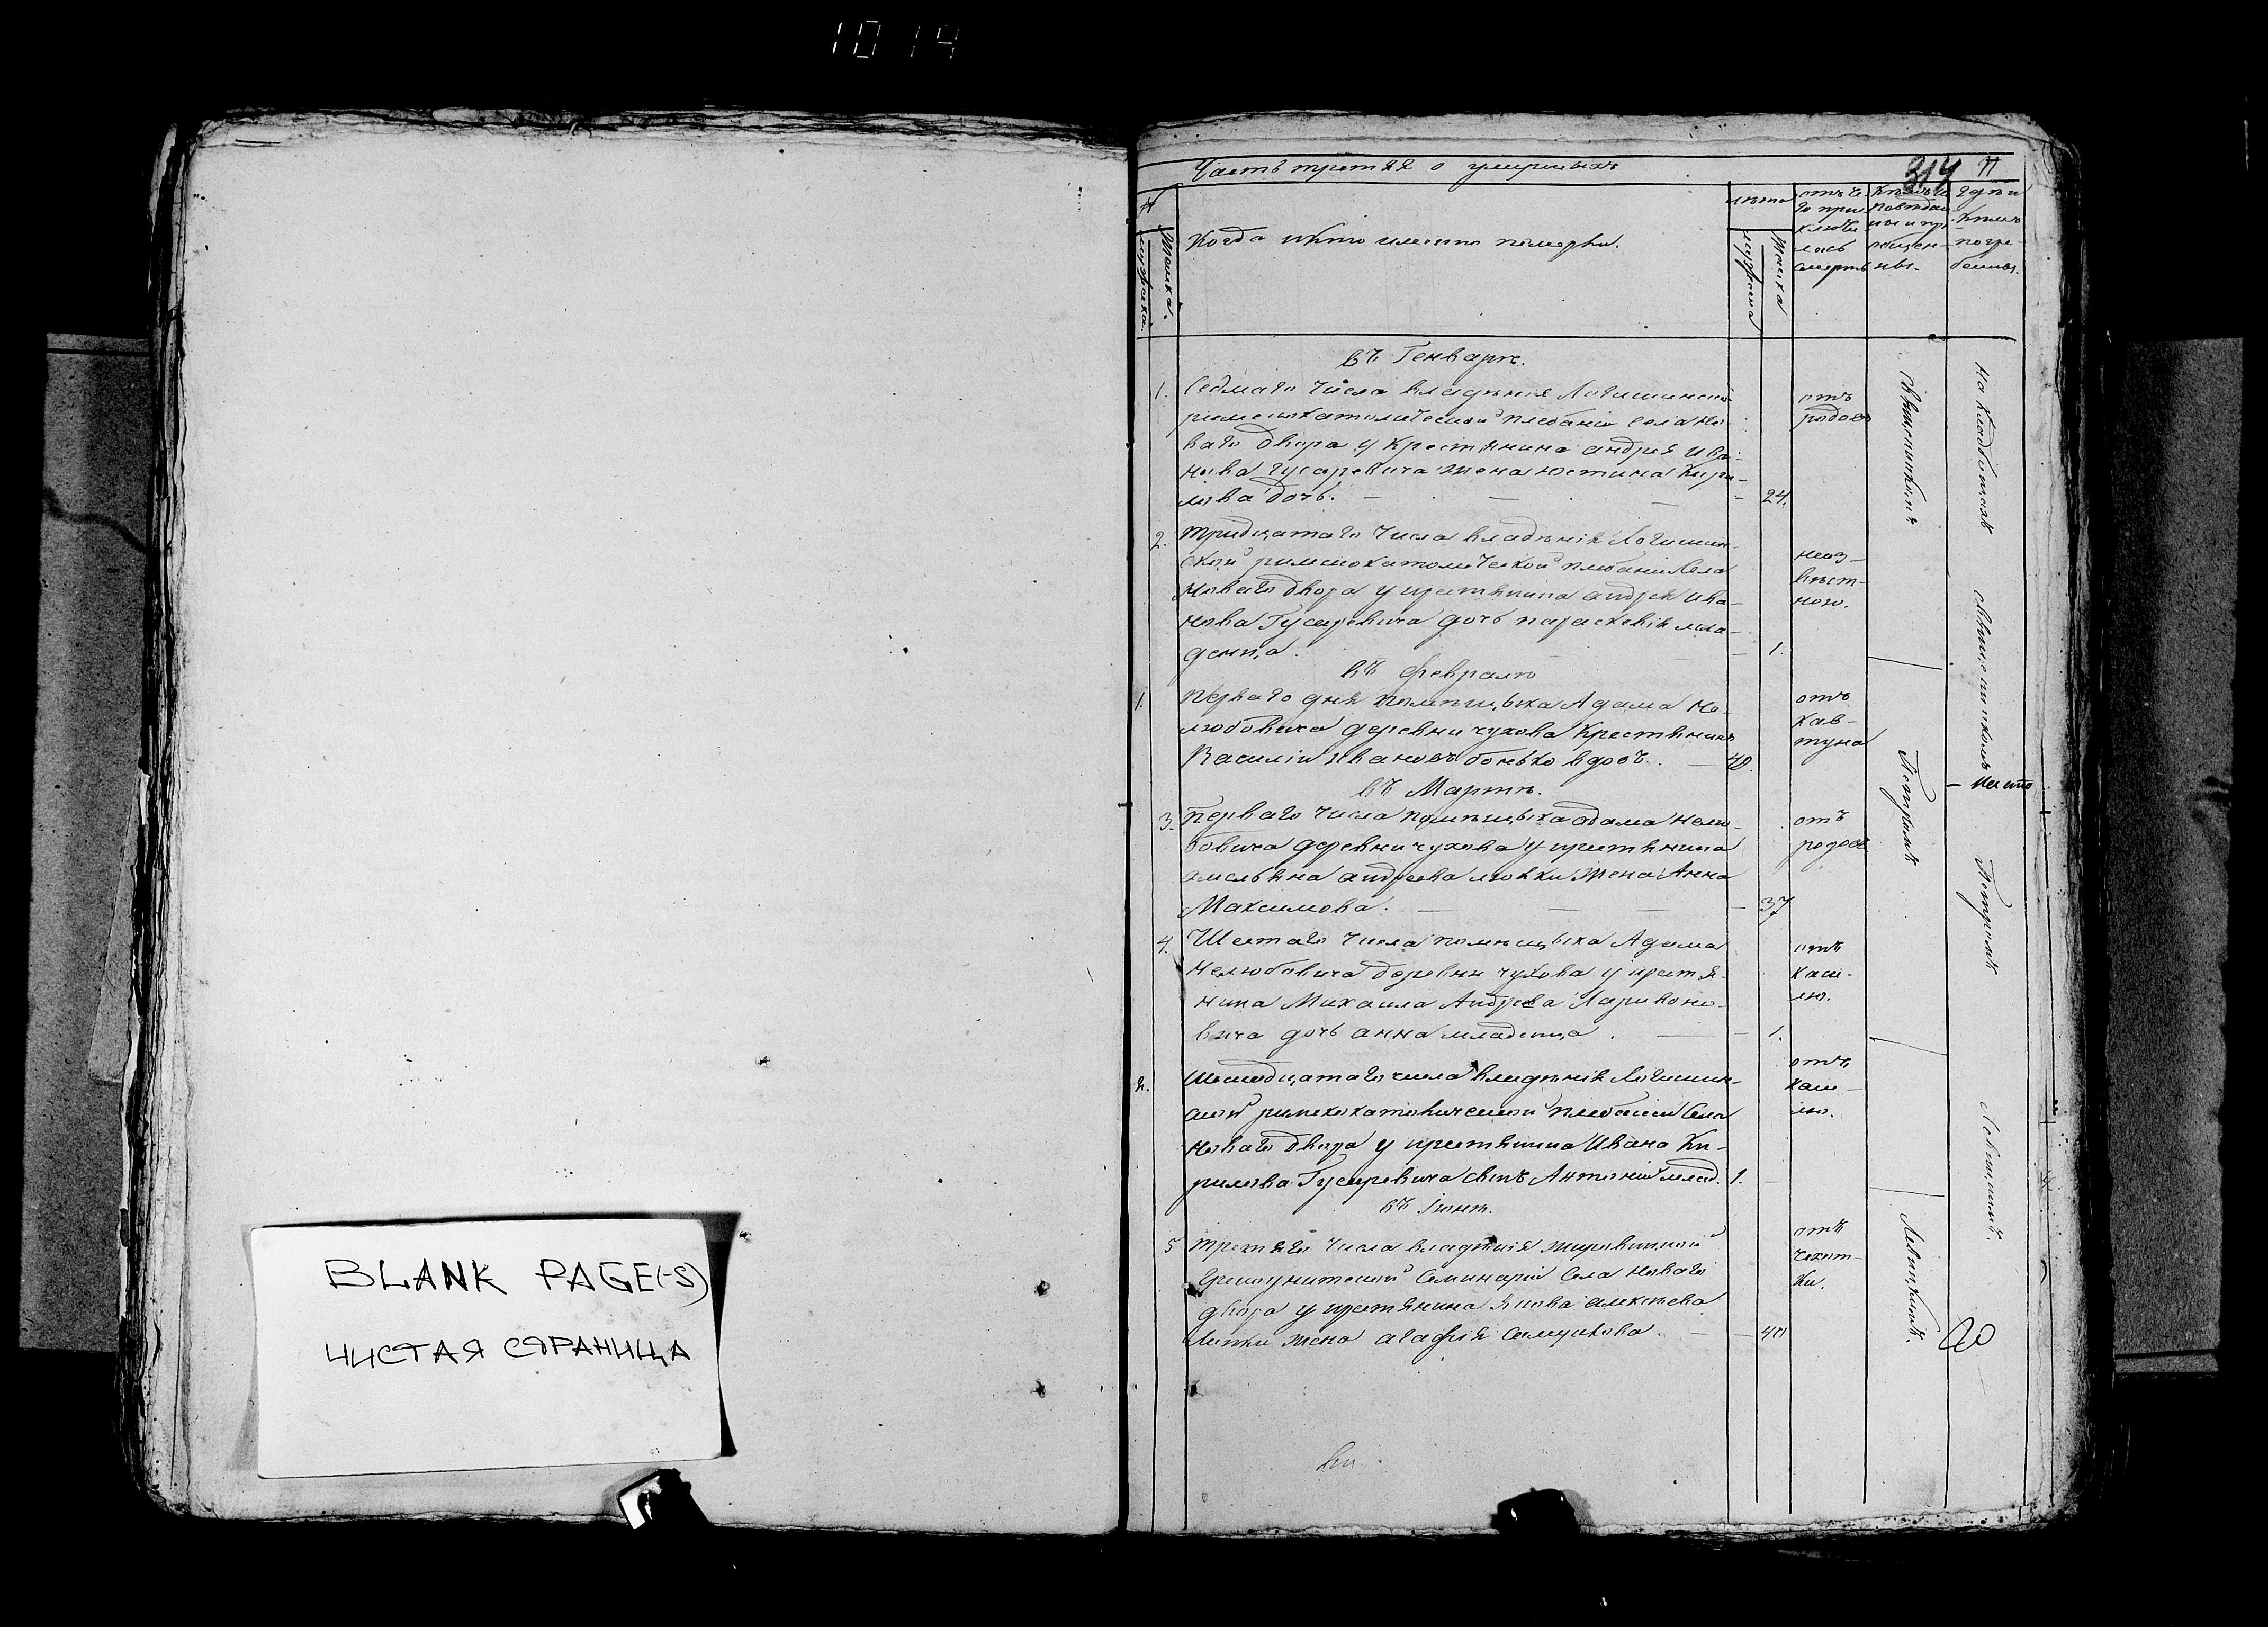 1014
BLANK PAGE(-S)
ЧИСТАЯ СТРАНИЦА
Часть третяя о умершыхъ
314
11
№
мужска.
женска.
Когда и кто именно померли.
лета
мужска
женска
отъ че-
го при
ключи
лась
смерть
Кемъ и
поведан
ны и пр
общен-
ны.
Где и
Кемъ
погре-
бенны.
въ Генваре.
1. Седмаго числа владения Логишинской
римскокатолической плебании села Но-
ваго двора у Крестянина андрея Ива-
нова Гусаревича жена Юстина Кири-
лова дочь. 24.
отъ
родовъ
2. тридцатаго числа владения Логишин-
ской римскокатолической плебании Села
Новаго двора у крестянина андрея Ива-
нова Гусаревича дочь параскевия мла-
денца. 1.
неиз-
вест-
ной.
въ Феврале
1. перваго дня помещыка Адама Не-
любовича деревни чухова Крестянинъ
Василий Ивановъ бонько вдовъ. 42.
отъ
Кав-
туна
въ Марте.
3. перваго числа помещыка адама нелю-
бовича деревни чухова у крестянина
амельяна андреева жена Анна
Максимова. 37
отъ
родовъ
4. Шестаго числа помещыка Адама
Нелюбовича деревни чухова у крестя-
нина Михаила Андреева Ларивоно-
вича дочь анна младенца. 1.
отъ
Каш-
лю.
2. числа владения Логишин-
ской римскокатолической плебании Села
Новаго двора у крестянина Ивана Ки-
рилова Гусаревича сынъ Антоний млад. 1.
отъ
каш-
лю.
въ Іюне.
5 третяго числа владения жировицкой
Грекоунитской Семинарии Села Новаго
двора у крестянина Якова алексеева
Липки жена агафия Самуилова. 40
отъ
чехот-
ки.
Священникомъ
Петромъ
Левицкимъ.
На Кладбищахъ
Священникомъ
Петромъ
Левицкимъ.